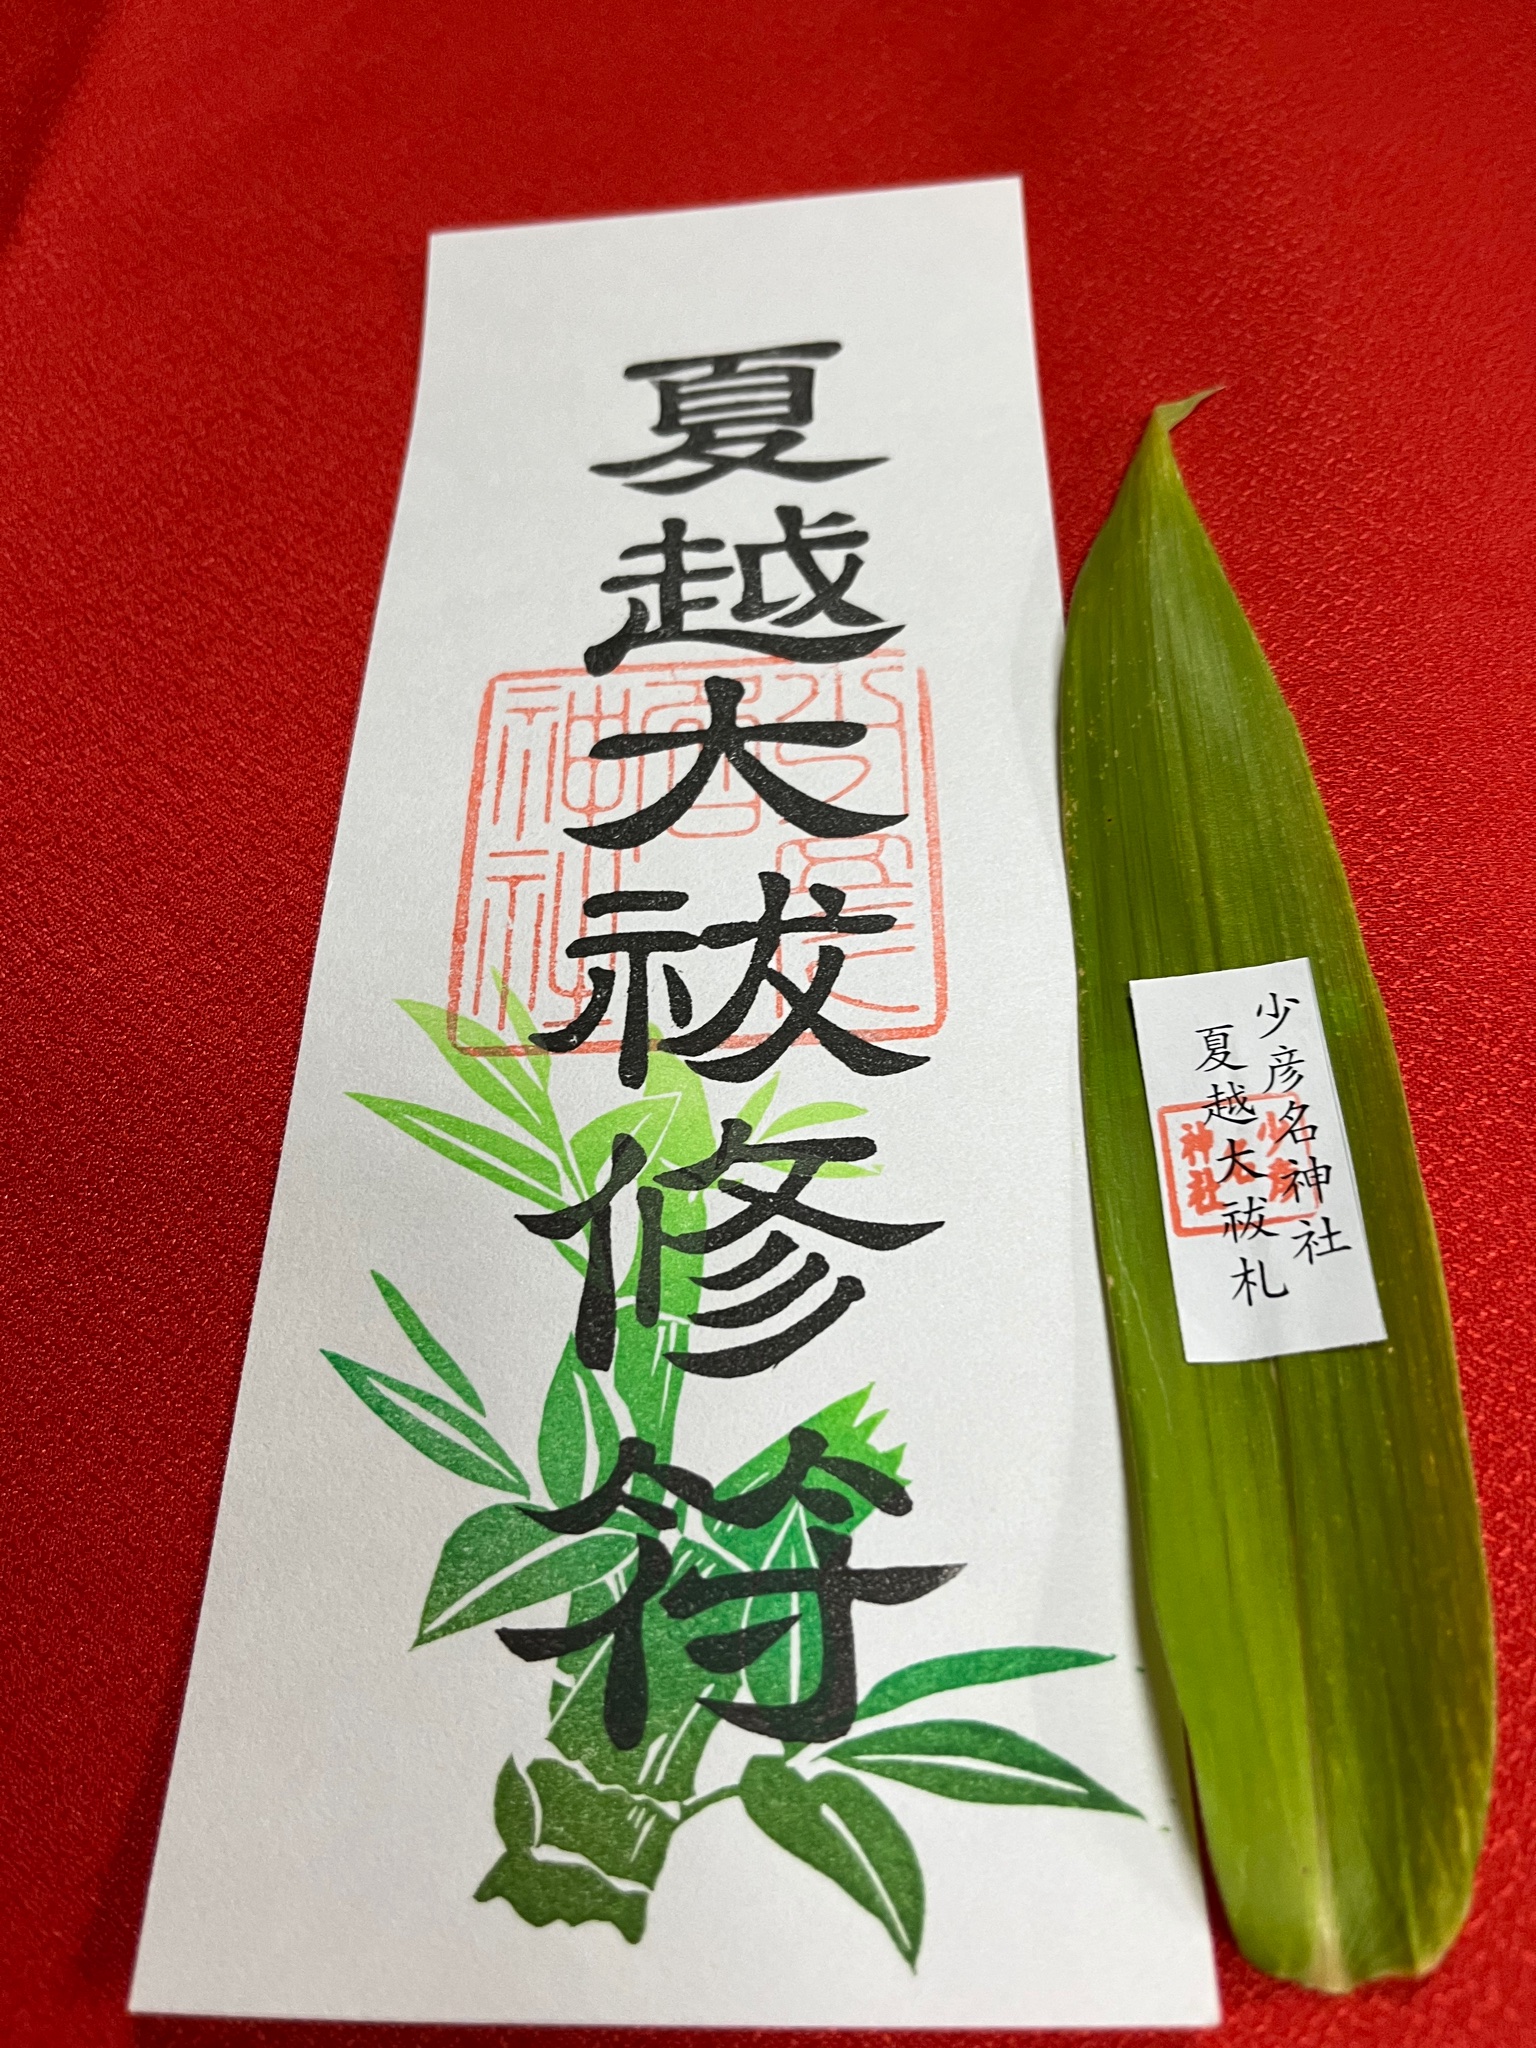 夏越大祓修符
少彦名神社
少彦名神社
夏越大祓札
少彦名神社